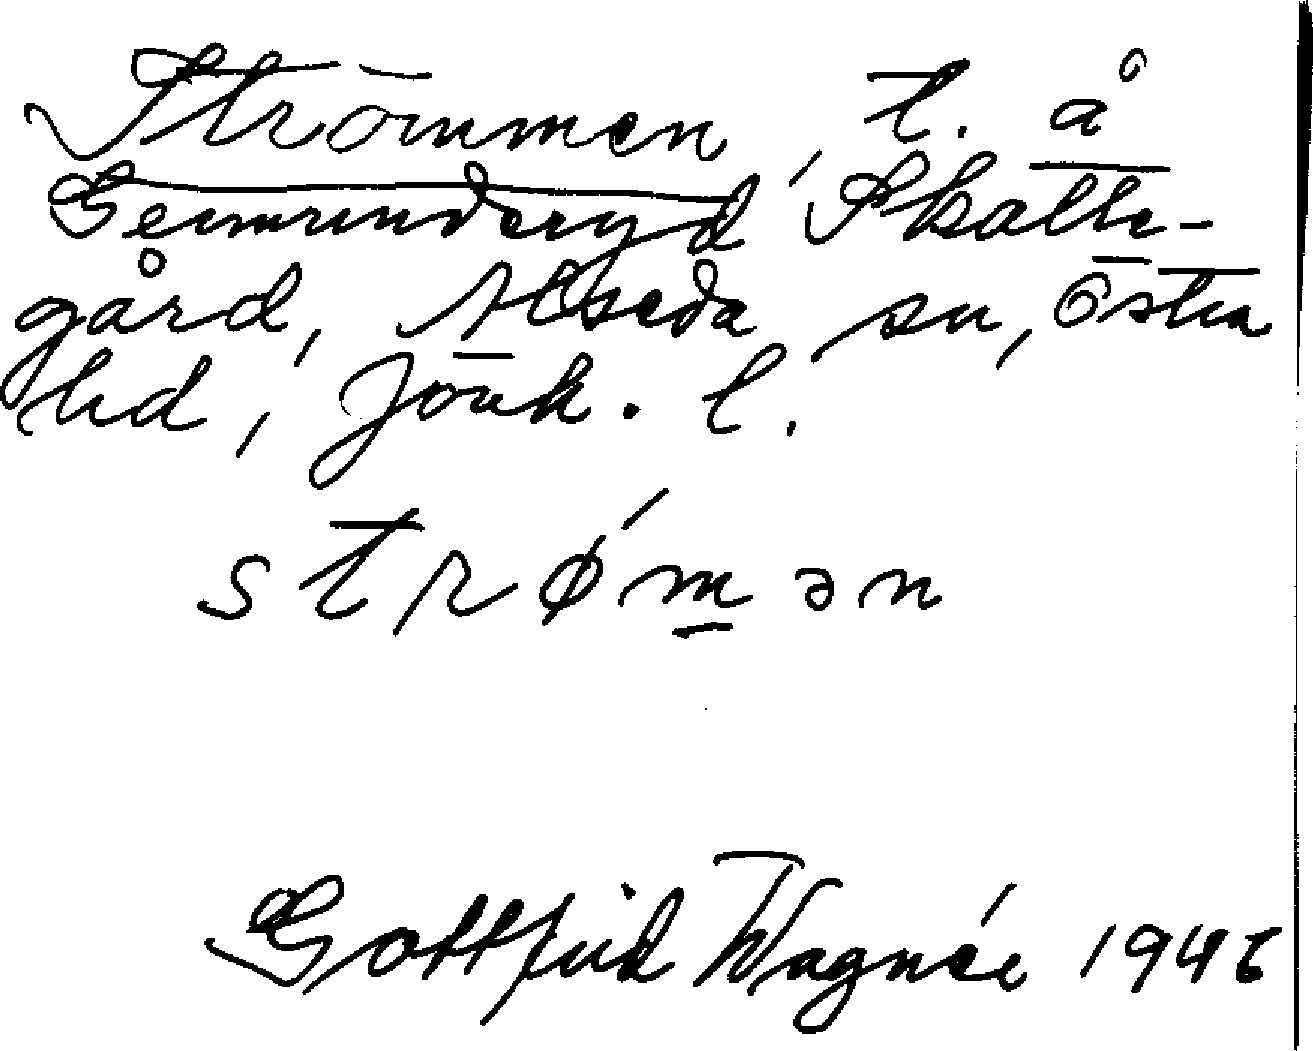 Strömmen, t. å
Germunderyd Skatte-
gård, Alseda sn, Östra
hd, Jönk. l.
strø´mən
Gottfrid Wagnér 1946